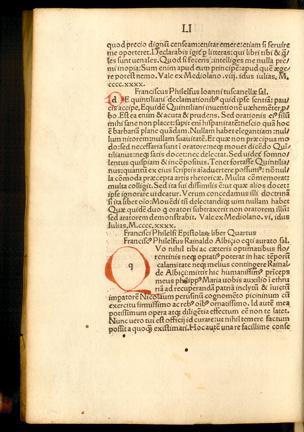 LI
quod precio dignū censeam: enitar emere: etiam si seruire
me oporteret. Declarabis igit̄ p litteras: qui libri tibi & q̄-
les sunt uenales. Quod si feceris: intelliges me nulla pre-
mi inopia. Sum enim apud eum principē: apud quē æge-
re potest nemo. Vale ex Mediolano. viii. idus iulias. M.
cccc.xxxx.
Franciscus Philelfus Ioanni tuscanellæ sal.
d E quintiliani declamationibꝰ quid ipse sentiā: pau-
cis accipe. Equidē Quintiliani inuentionē uehemēter p-
bo. Est ea enim & acuta & prudens. Sed orationis eiꝰ filū
mihi sane non placet: sapit enī hispanitatē nescio quā hoc ē
barbariā plane quādam. Nullam habet elegantiam: nul-
lum nitorem: nullam suauitatē. Et quæ non præcipua mo-
do: sed necessaria sunt ī oratore: neq̄ mouet dicēdo Quī-
tilianus: neq̄ satis docet: nec delectat. Sed uidet̄ somno-
lentus quispiam & incompositus. Tenet fortasse Quintilia-
nus: quantū ex eius scriptis aīaduertere possumꝰ: nō nul-
la cōmoda præcepta artis rhetoricæ. Multa cōmemorat:
multa colligit. Sed ita sui dissimilis ē ut quæ alios docet:
ipse ignorare uideatur. Verum concedamus illi: doctrinā
si ita libet eloq̄: Mouēdi uis delectandiq̄ uim nullam habet
Quæ quidē duo ꝗ oratori subtraxerit non oratorem illum
sed aratorem demonstrabit. Vale ex Mediolano. vi. idus
Iulias, M.cccc.xxxx.
Francisci Philelfi Epistolaꝝ liber Quartus
Franciscꝰ Philelfus Rainaldo Albiçio equi aurato sal.
q Vo nihil tibi ac cæteris optimatibus flo-
rentinis neq̄ optatiꝰ poterat in hac tēporū
calamitate neq̄ melius contingere Rainal-
de Albiçi: mittit hic humanissimꝰ prīceps
meus philippꝰ Maria uobis auxilio ī ethru-
riā ad recuperandā patriā inclytū & iuictū
impatorē Nicolaum perusinū cognomēto picininum cū
exercitu firmissimo ac rebꝰ oībꝰ ornatissimo. Id autē mea
potissimum opera atq̄ diligētia effectum cēn nō te latet.
Nunc uero tui est officii id curare: tu nihil temere factum
possit a quoq̄ existimari. Hoc autē una re facillime conse